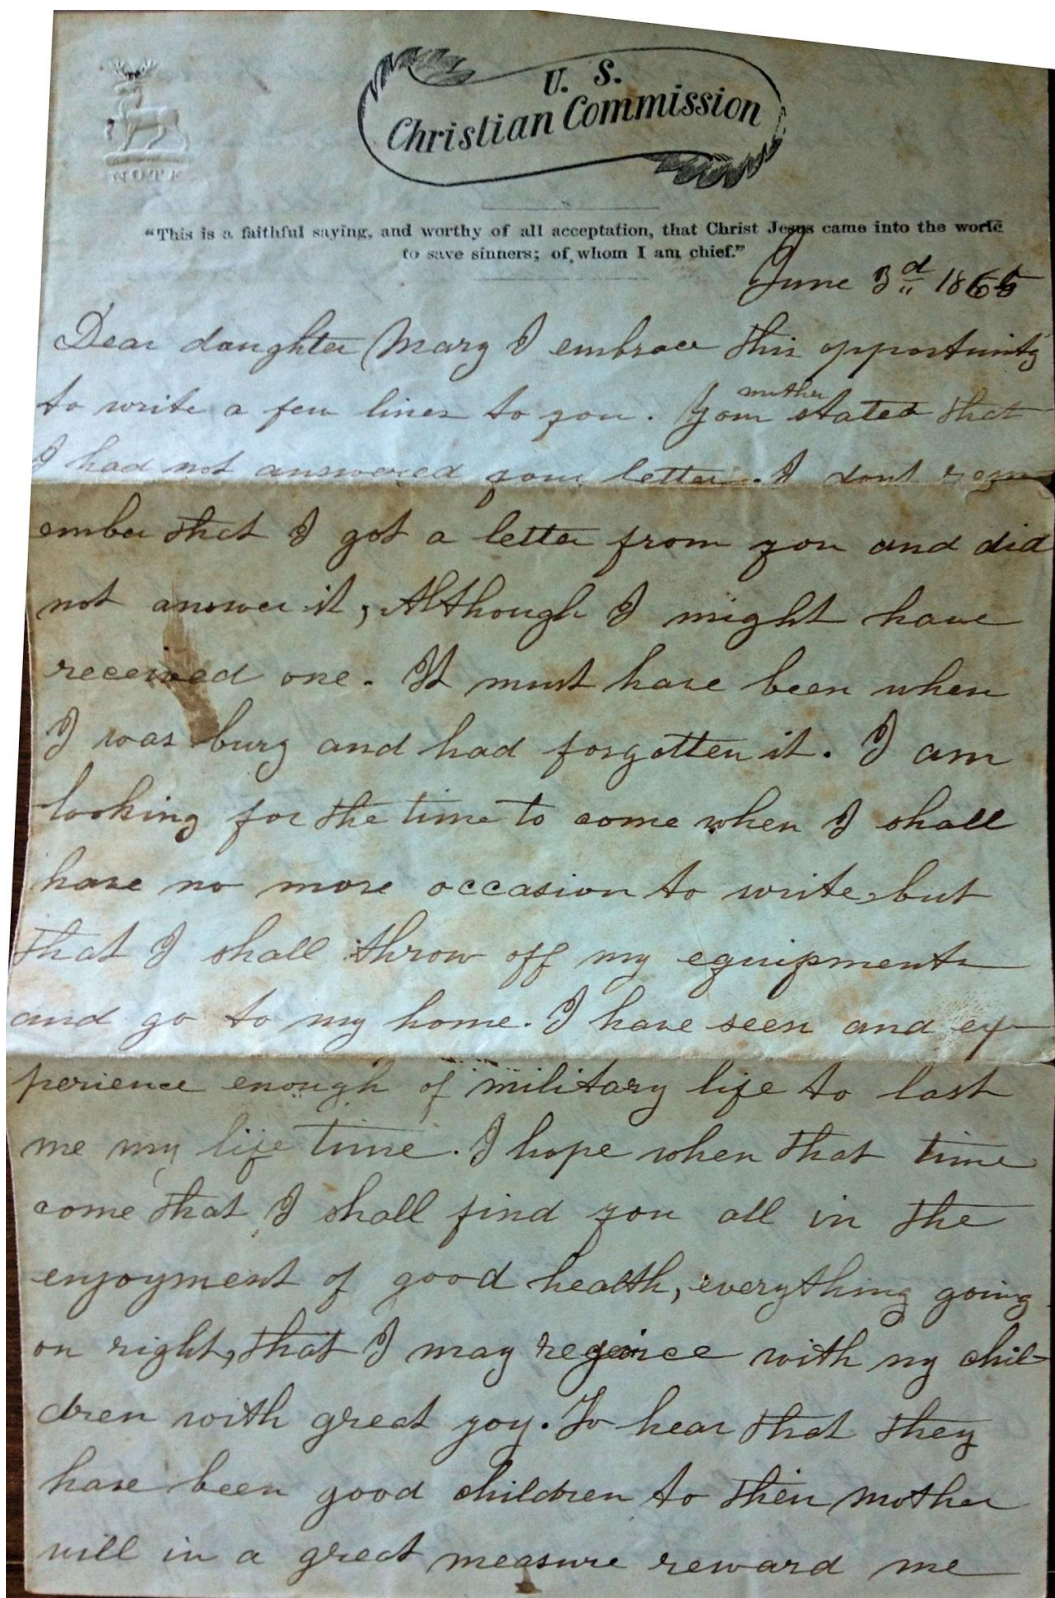 NOTE
U. S.
Christian Commission
"This is a faithful saying, and worthy of all acceptation, that Christ Jesus came into the world
to save sinners; of whom I am chief."
June 3d 1865
Dear daughter Mary I embrace this opportunity
to write a few lines to you. Your mother stated that
I had not answered your letter. I dont rem
ember that I got a letter from you and did
not answer it, Although I might have
received one. It must have been when
I was busy and had forgotten it. I am
looking for the time to come when I shall
have no more occasion to write, but
that I shall throw off my equipments
and go to my home. I have seen and ex-
perience enough of military life to last
me my life time. I hope when that time
come that I shall find you all in the
enjoyment of good health, everything going
on right, that I may rejoice with my chil-
dren with great joy. To hear that they
have been good children to their mother
will in a great measure reward me